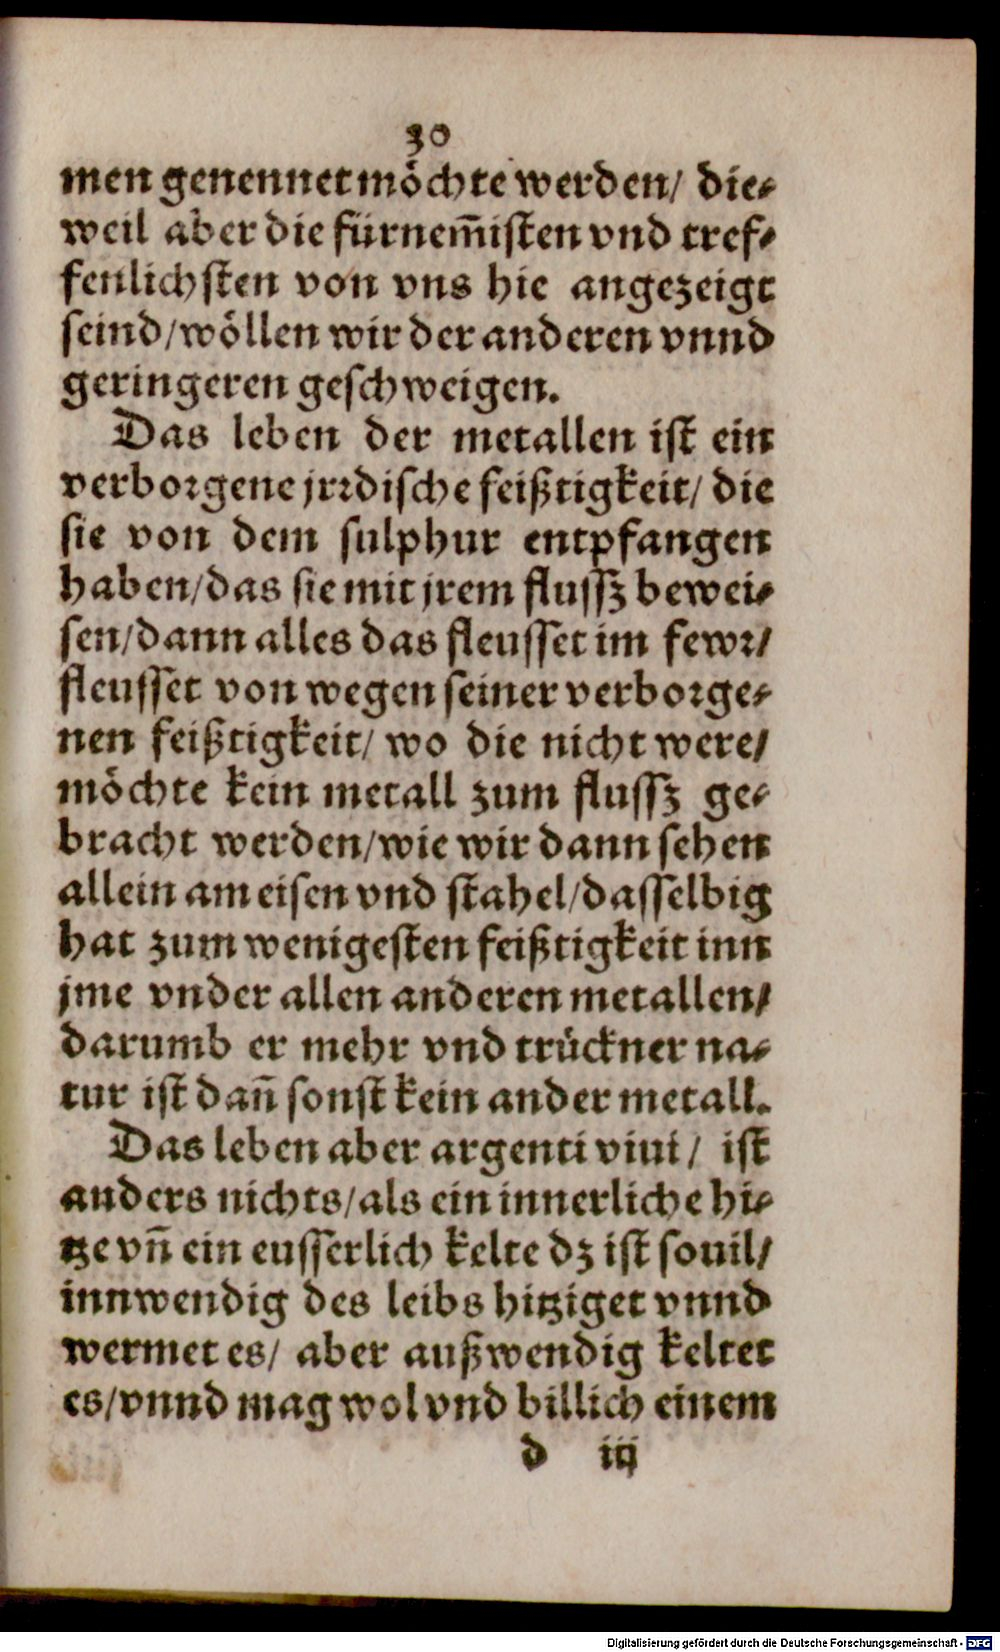 30
men genennet möchte werden/ die⸗
weil aber die fürnem̃isten vnd tref⸗
fenlichsten von vns hie angezeigt
seind/wöllen wir der anderen vnnd
geringeren geschweigen.
Das leben der metallen ist ein
verborgene jrrdische feißtigkeit/ die
sie von dem sulphur entpfangen
haben/das sie mit jrem flussz bewei⸗
sen/dann alles das fleusset im fewr/
fleusset von wegen seiner verborge⸗
nen feißtigkeit/ wo die nicht were/
möchte kein metall zum flussz ge⸗
bracht werden/wie wir dann sehen
allein am eisen vnd stahel/dasselbig
hat zum wenigesten feißtigkeit inn
jme vnder allen anderen metallen/
darumb er mehr vnd trückner na⸗
tur ist dañ sonst kein ander metall.
Das leben aber argenti viui/ ist
anders nichts/als ein innerliche hi⸗
tze vñ ein eusserlich kelte dz ist souil/
innwendig des leibs hitziget vnnd
wermet es/ aber außwendig keltet
es/vnnd mag wol vnd billich einem
d iij
Digitalisierung gefördert durch die Deutsche Forschungsgemeinschaft - DFG